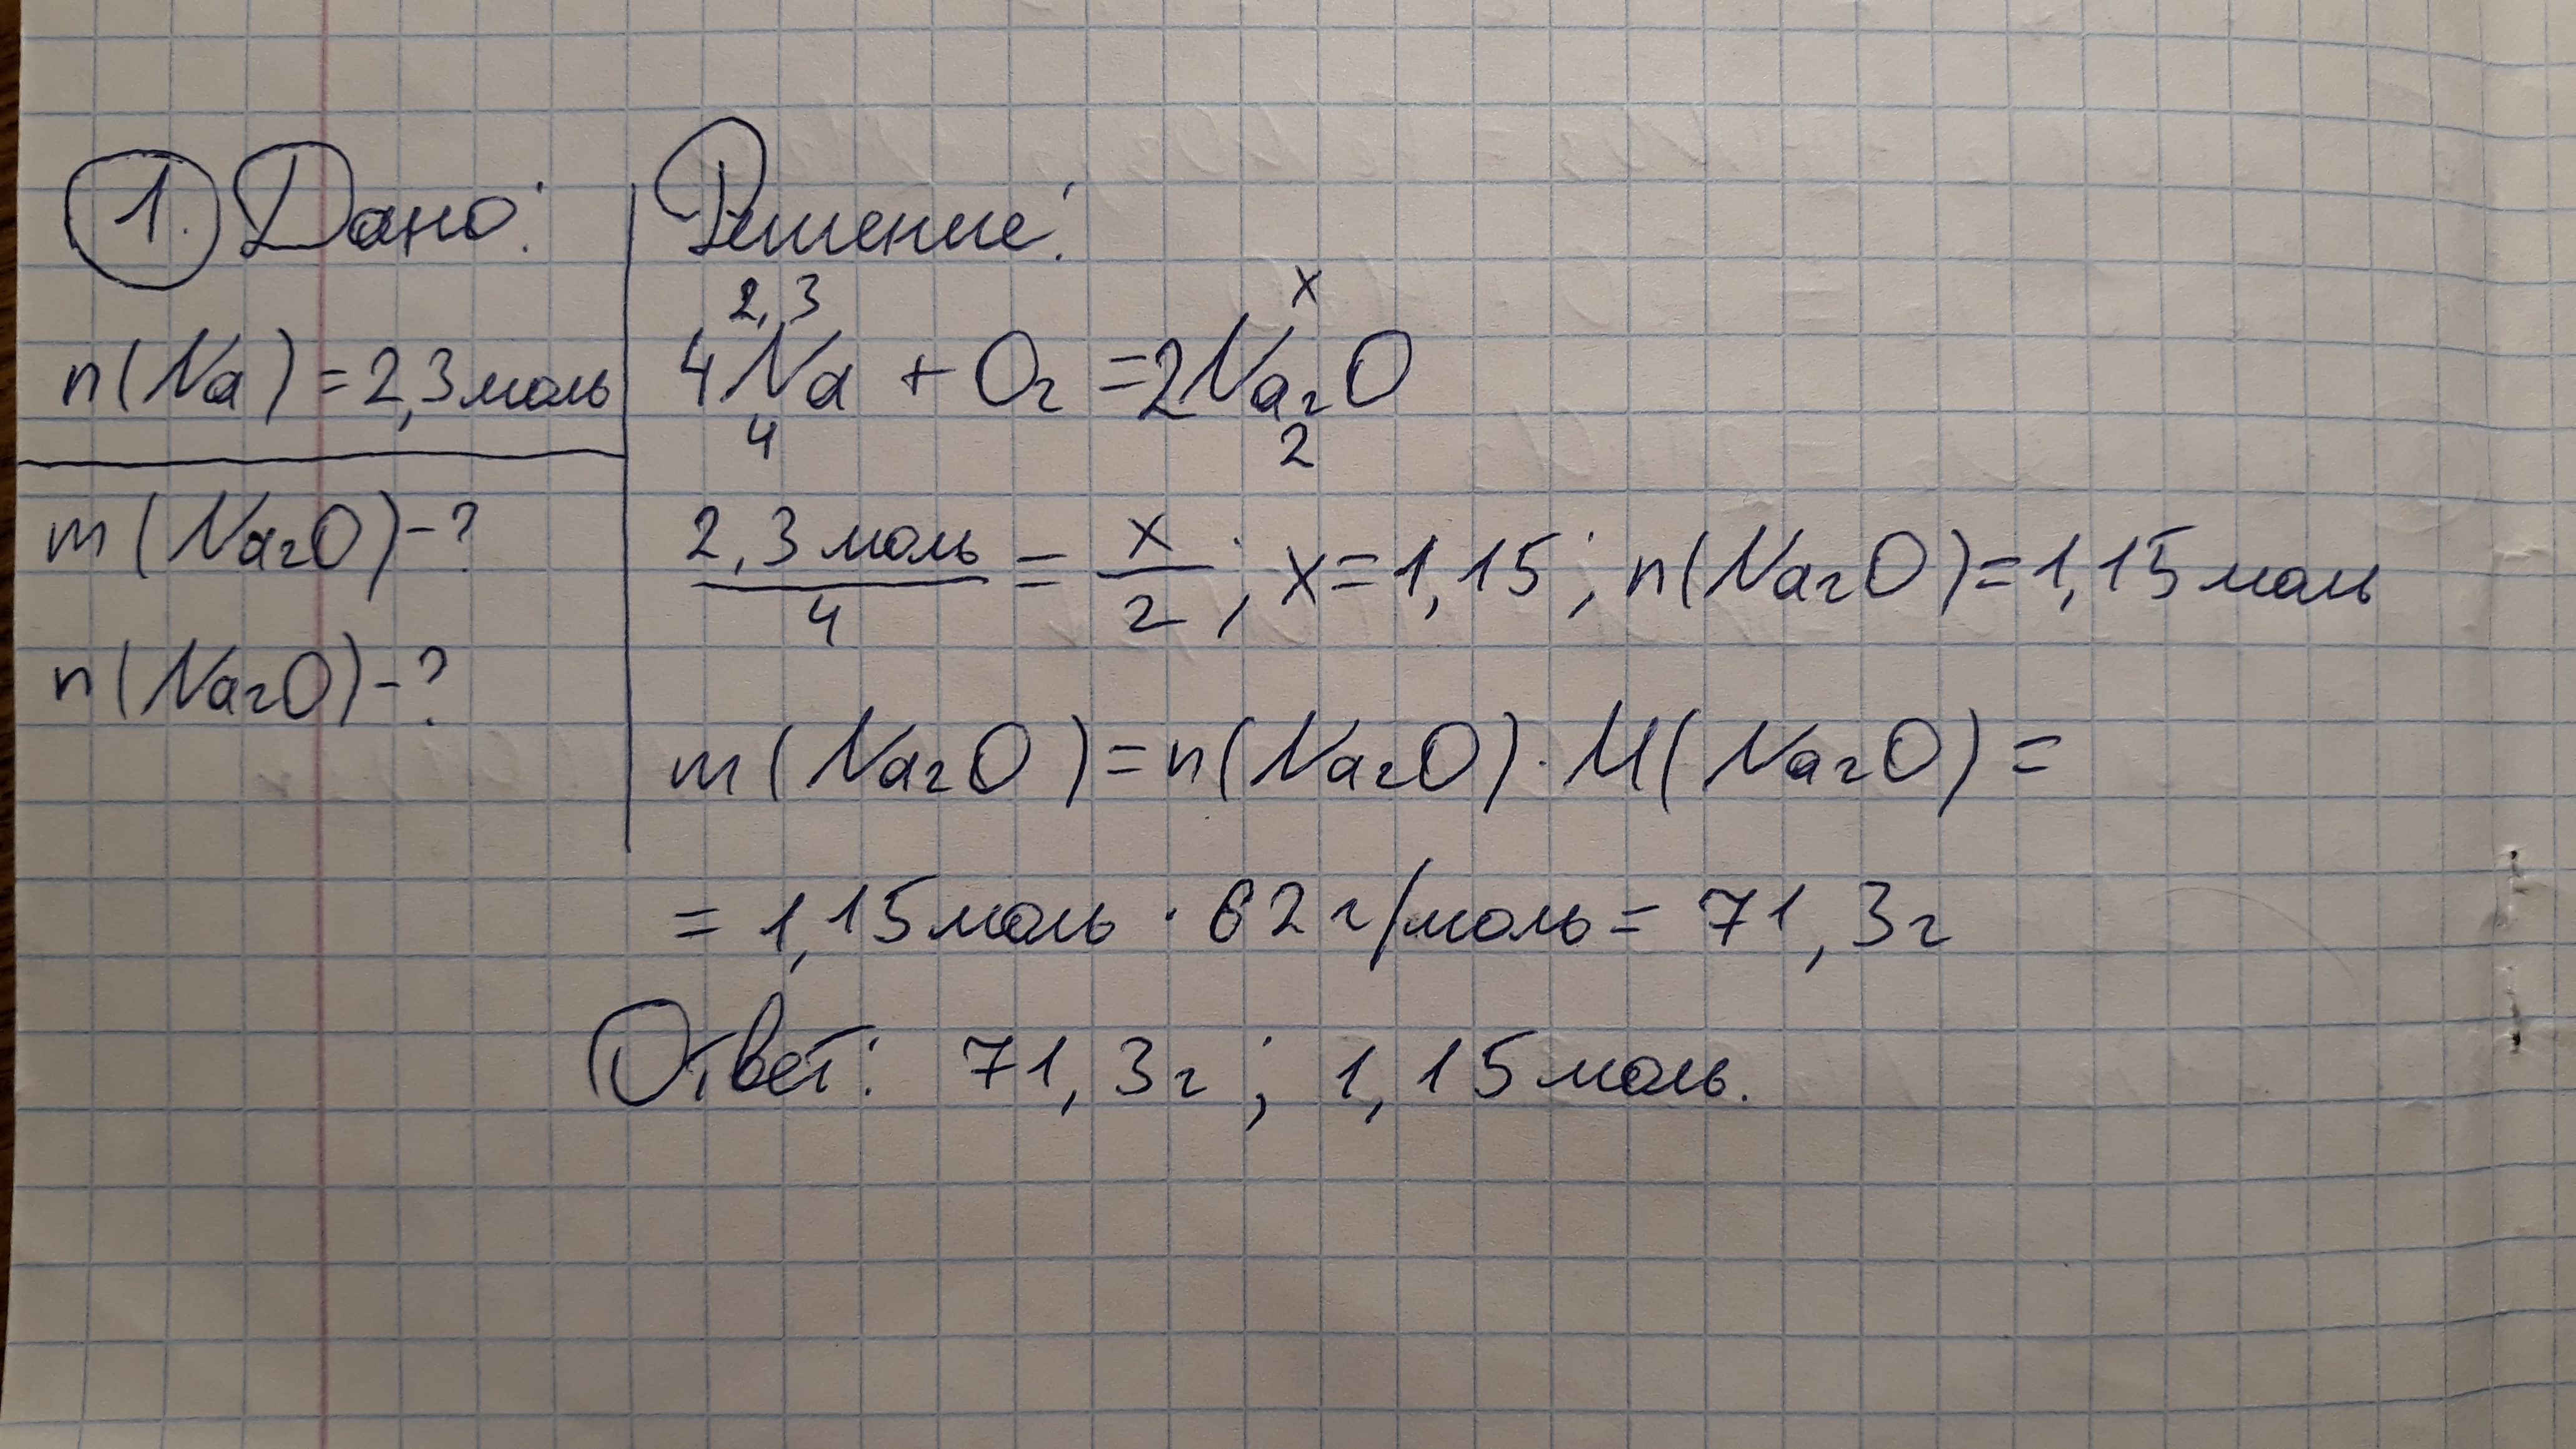 1. Дано:
n(Na) = 2,3 моль
m(Na2O) - ?
n(Na2O) - ?
Решение:
2,3 x
4Na + O2 = 2Na2O
4 2
2,3 моль/4 = x/2; x = 1,15; n(Na2O) = 1,15 моль
m(Na2O) = n(Na2O) · M(Na2O) =
= 1,15 моль · 62 г/моль = 71,3 г
Ответ: 71,3 г; 1,15 моль.